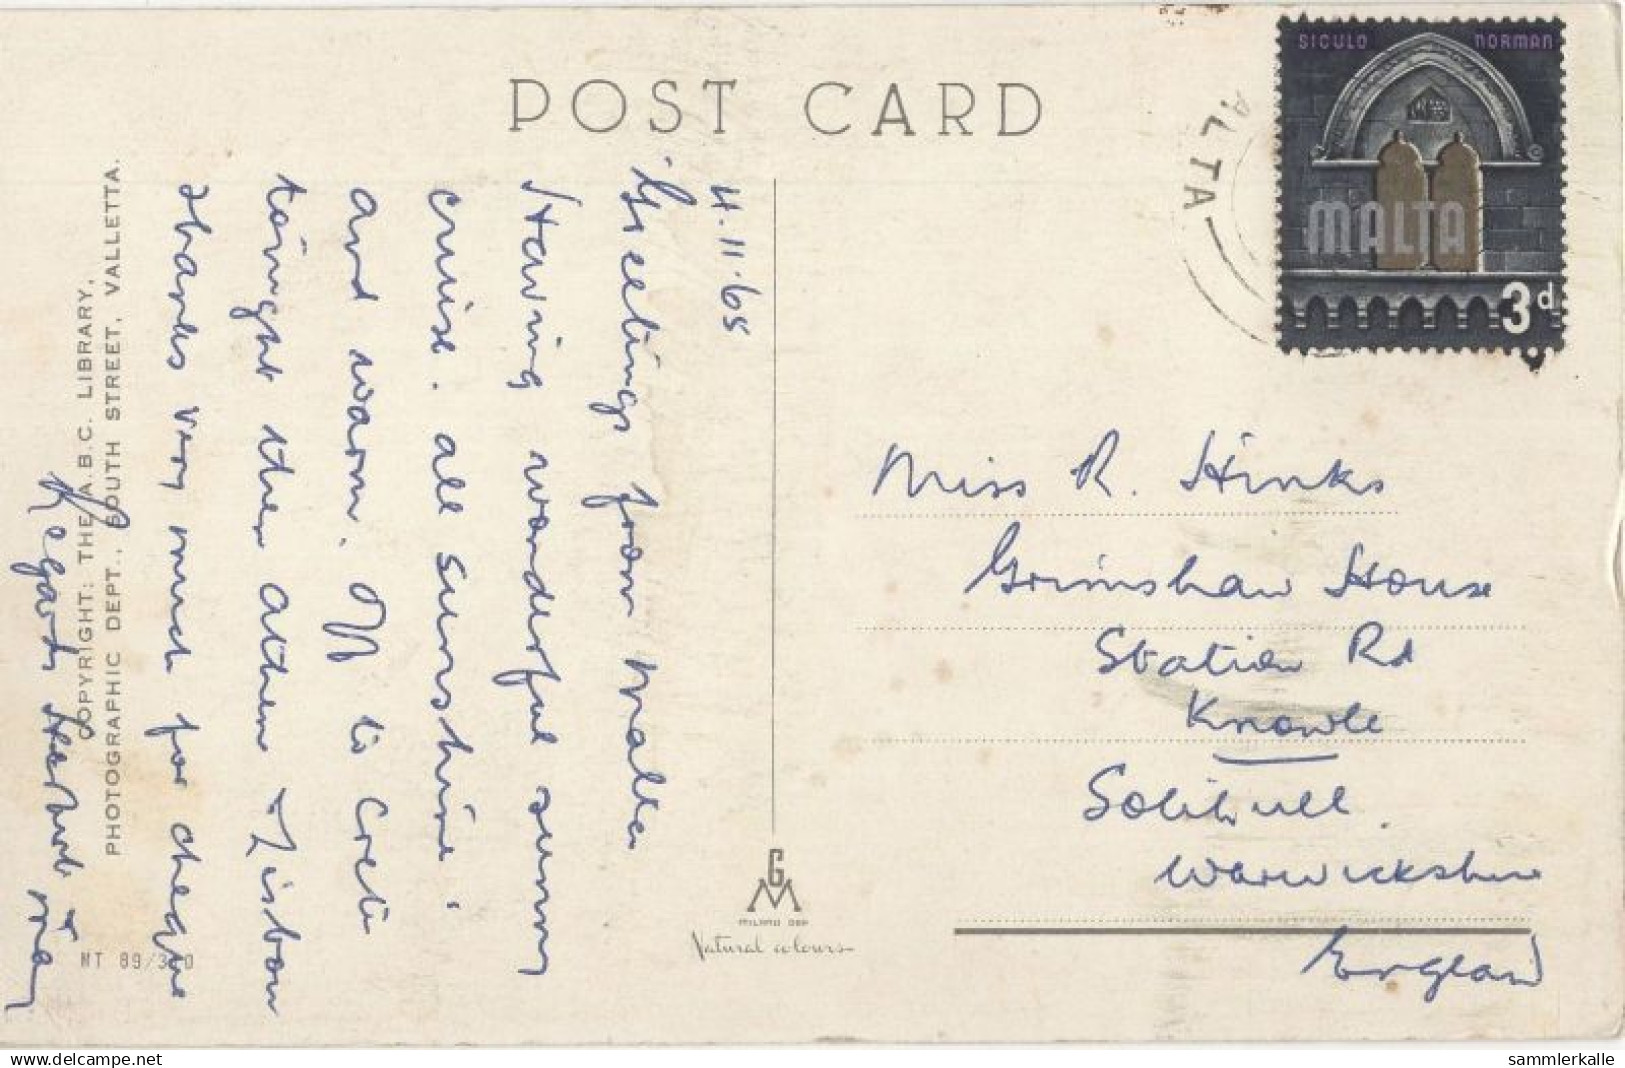 POST CARD
SICULO NORMAN
MALTA
3d
ALTA
4.11.65
Greetings from Malta
Having wonderful sunny
cruise. all sunshine
and warm. Off to Crete
tonight then Athens + Lisbon
thanks very much for cheque
Regards Herbert + May
COPYRIGHT: THE A.B.C. LIBRARY,
PHOTOGRAPHIC DEPT., SOUTH STREET, VALLETTA.
MT 89/
GM
MILANO DEP
Natural colours
Miss R. Hinks
Grimshaw House
Station Rd
Knowle
Solihull.
Warwickshire
England
delcampe.net
sammlerkalle